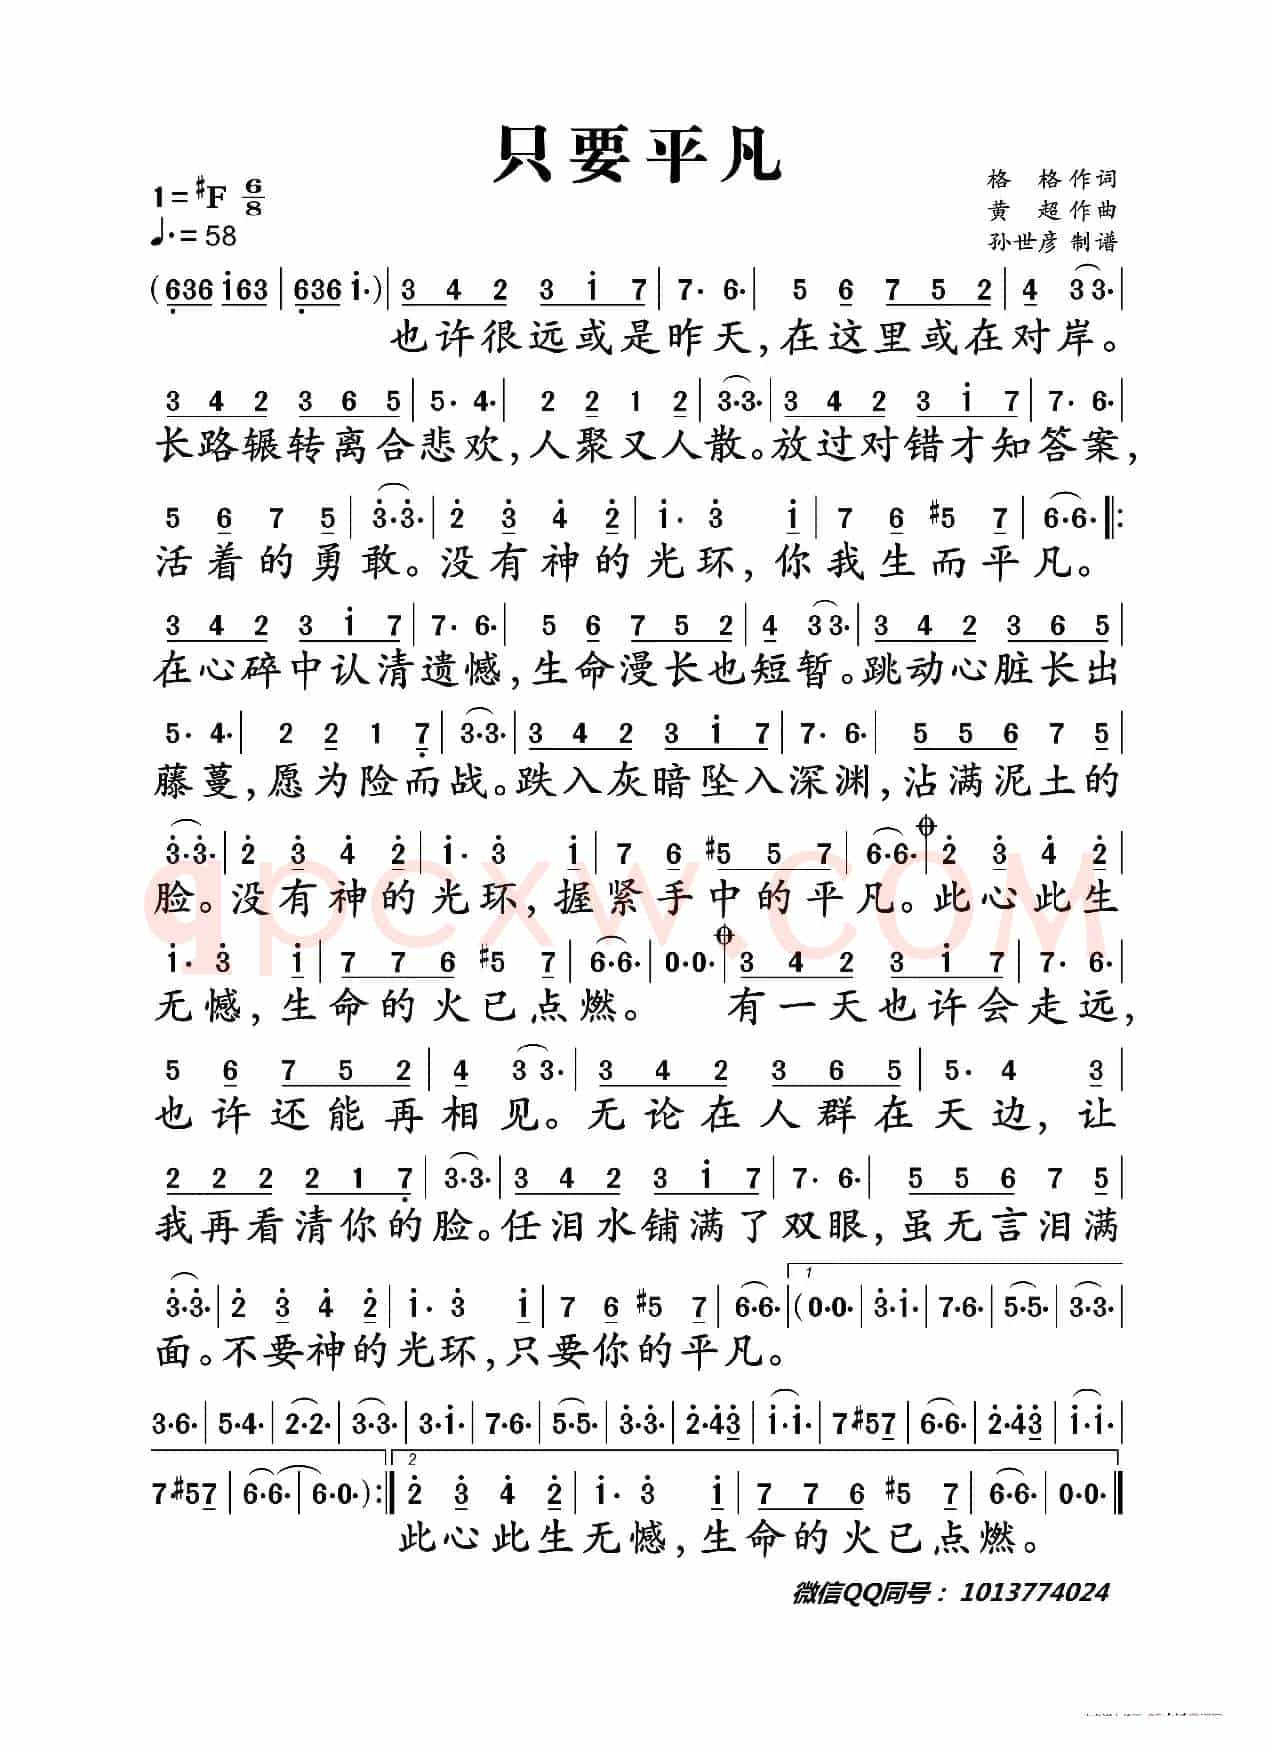 只要平凡
1=♯F 6/8
♩.=58
格 格 作词
黄 超 作曲
孙世彦 制谱
(636 i63|636 i·)|3 4 2 3 i 7|7· 6·|5 6 7 5 2|4 33·|
也许很远或是昨天,在这里或在对岸。
3 4 2 3 6 5|5· 4·|2 2 1 2|3·3·|3 4 2 3 i 7|7· 6·|
长路辗转离合悲欢,人聚又人散。放过对错才知答案,
5 6 7 5|3·3·|2 3 4 2|i· 3 i|7 6 ♯5 7|6·6·‖:
活着的勇敢。没有神的光环,你我生而平凡。
3 4 2 3 i 7|7· 6·|5 6 7 5 2|4 33·|3 4 2 3 6 5|
在心碎中认清遗憾,生命漫长也短暂。跳动心脏长出
5· 4·|2 2 1 7|3·3·|3 4 2 3 i 7|7· 6·|5 5 6 7 5|
藤蔓,愿为险而战。跌入灰暗坠入深渊,沾满泥土的
3·3·|2 3 4 2|i· 3 i|7 6 ♯5 5 7|6·6·|2 3 4 2|
脸。没有神的光环,握紧手中的平凡。此心此生
i· 3 i|7 7 6 ♯5 7|6·6·|0·0·|3 4 2 3 i 7|7· 6·|
无憾,生命的火已点燃。 有一天也许会走远,
5 6 7 5 2|4 33·|3 4 2 3 6 5|5· 4 3|
也许还能再相见。无论在人群在天边,让
2 2 2 2 1 7|3·3·|3 4 2 3 i 7|7· 6·|5 5 6 7 5|
我再看清你的脸。任泪水铺满了双眼,虽无言泪满
1
3·3·|2 3 4 2|i· 3 i|7 6 ♯5 7|6·6·|(0·0·|3·i·|7·6·|5·5·|3·3·|
面。不要神的光环,只要你的平凡。
3·6·|5·4·|2·2·|3·3·|3·i·|7·6·|5·5·|3·3·|2·43|i·i·|7♯57|6·6·|2·43|i·i·|
2
7♯57|6·6·|6·0·):‖2 3 4 2|i· 3 i|7 7 6 ♯5 7|6·6·|0·0·‖
此心此生无憾,生命的火已点燃。
微信QQ同号：1013774024
qpcxw.COM